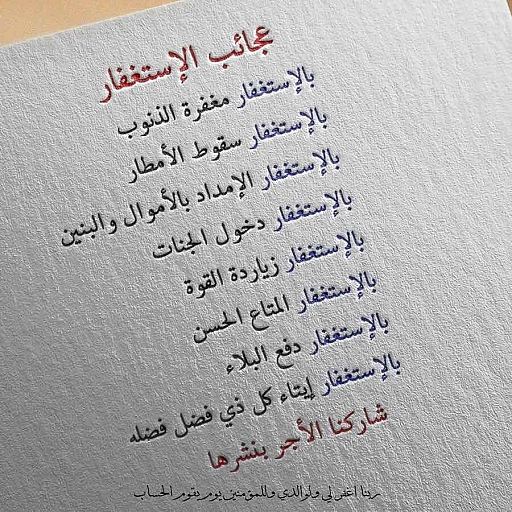 عجائب الإستغفار
بالإستغفار مغفرة الذنوب
بالإستغفار سقوط الأمطار
بالإستغفار الإمداد بالأموال والبنين
بالإستغفار دخول الجنات
بالإستغفار زياردة القوة
بالإستغفار المتاع الحسن
بالإستغفار دفع البلاء
بالإستغفار إيتاء كل ذي فضل فضله
شاركنا الأجر بنشرها
ربنا اغفر لي ولوالدي وللمؤمنين يوم يقوم الحساب